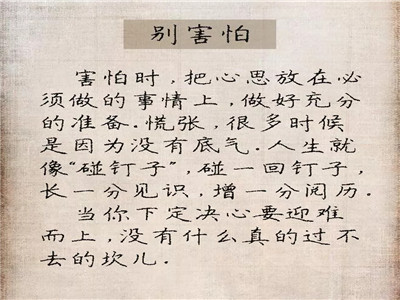 别害怕
害怕时,把心思放在必
须做的事情上,做好充分
的准备.慌张,很多时候
是因为没有底气.人生就
像“碰钉子”,碰一回钉子,
长一分见识,增一分阅历.
当你下定决心要迎难
而上,没有什么真的过不
去的坎儿.